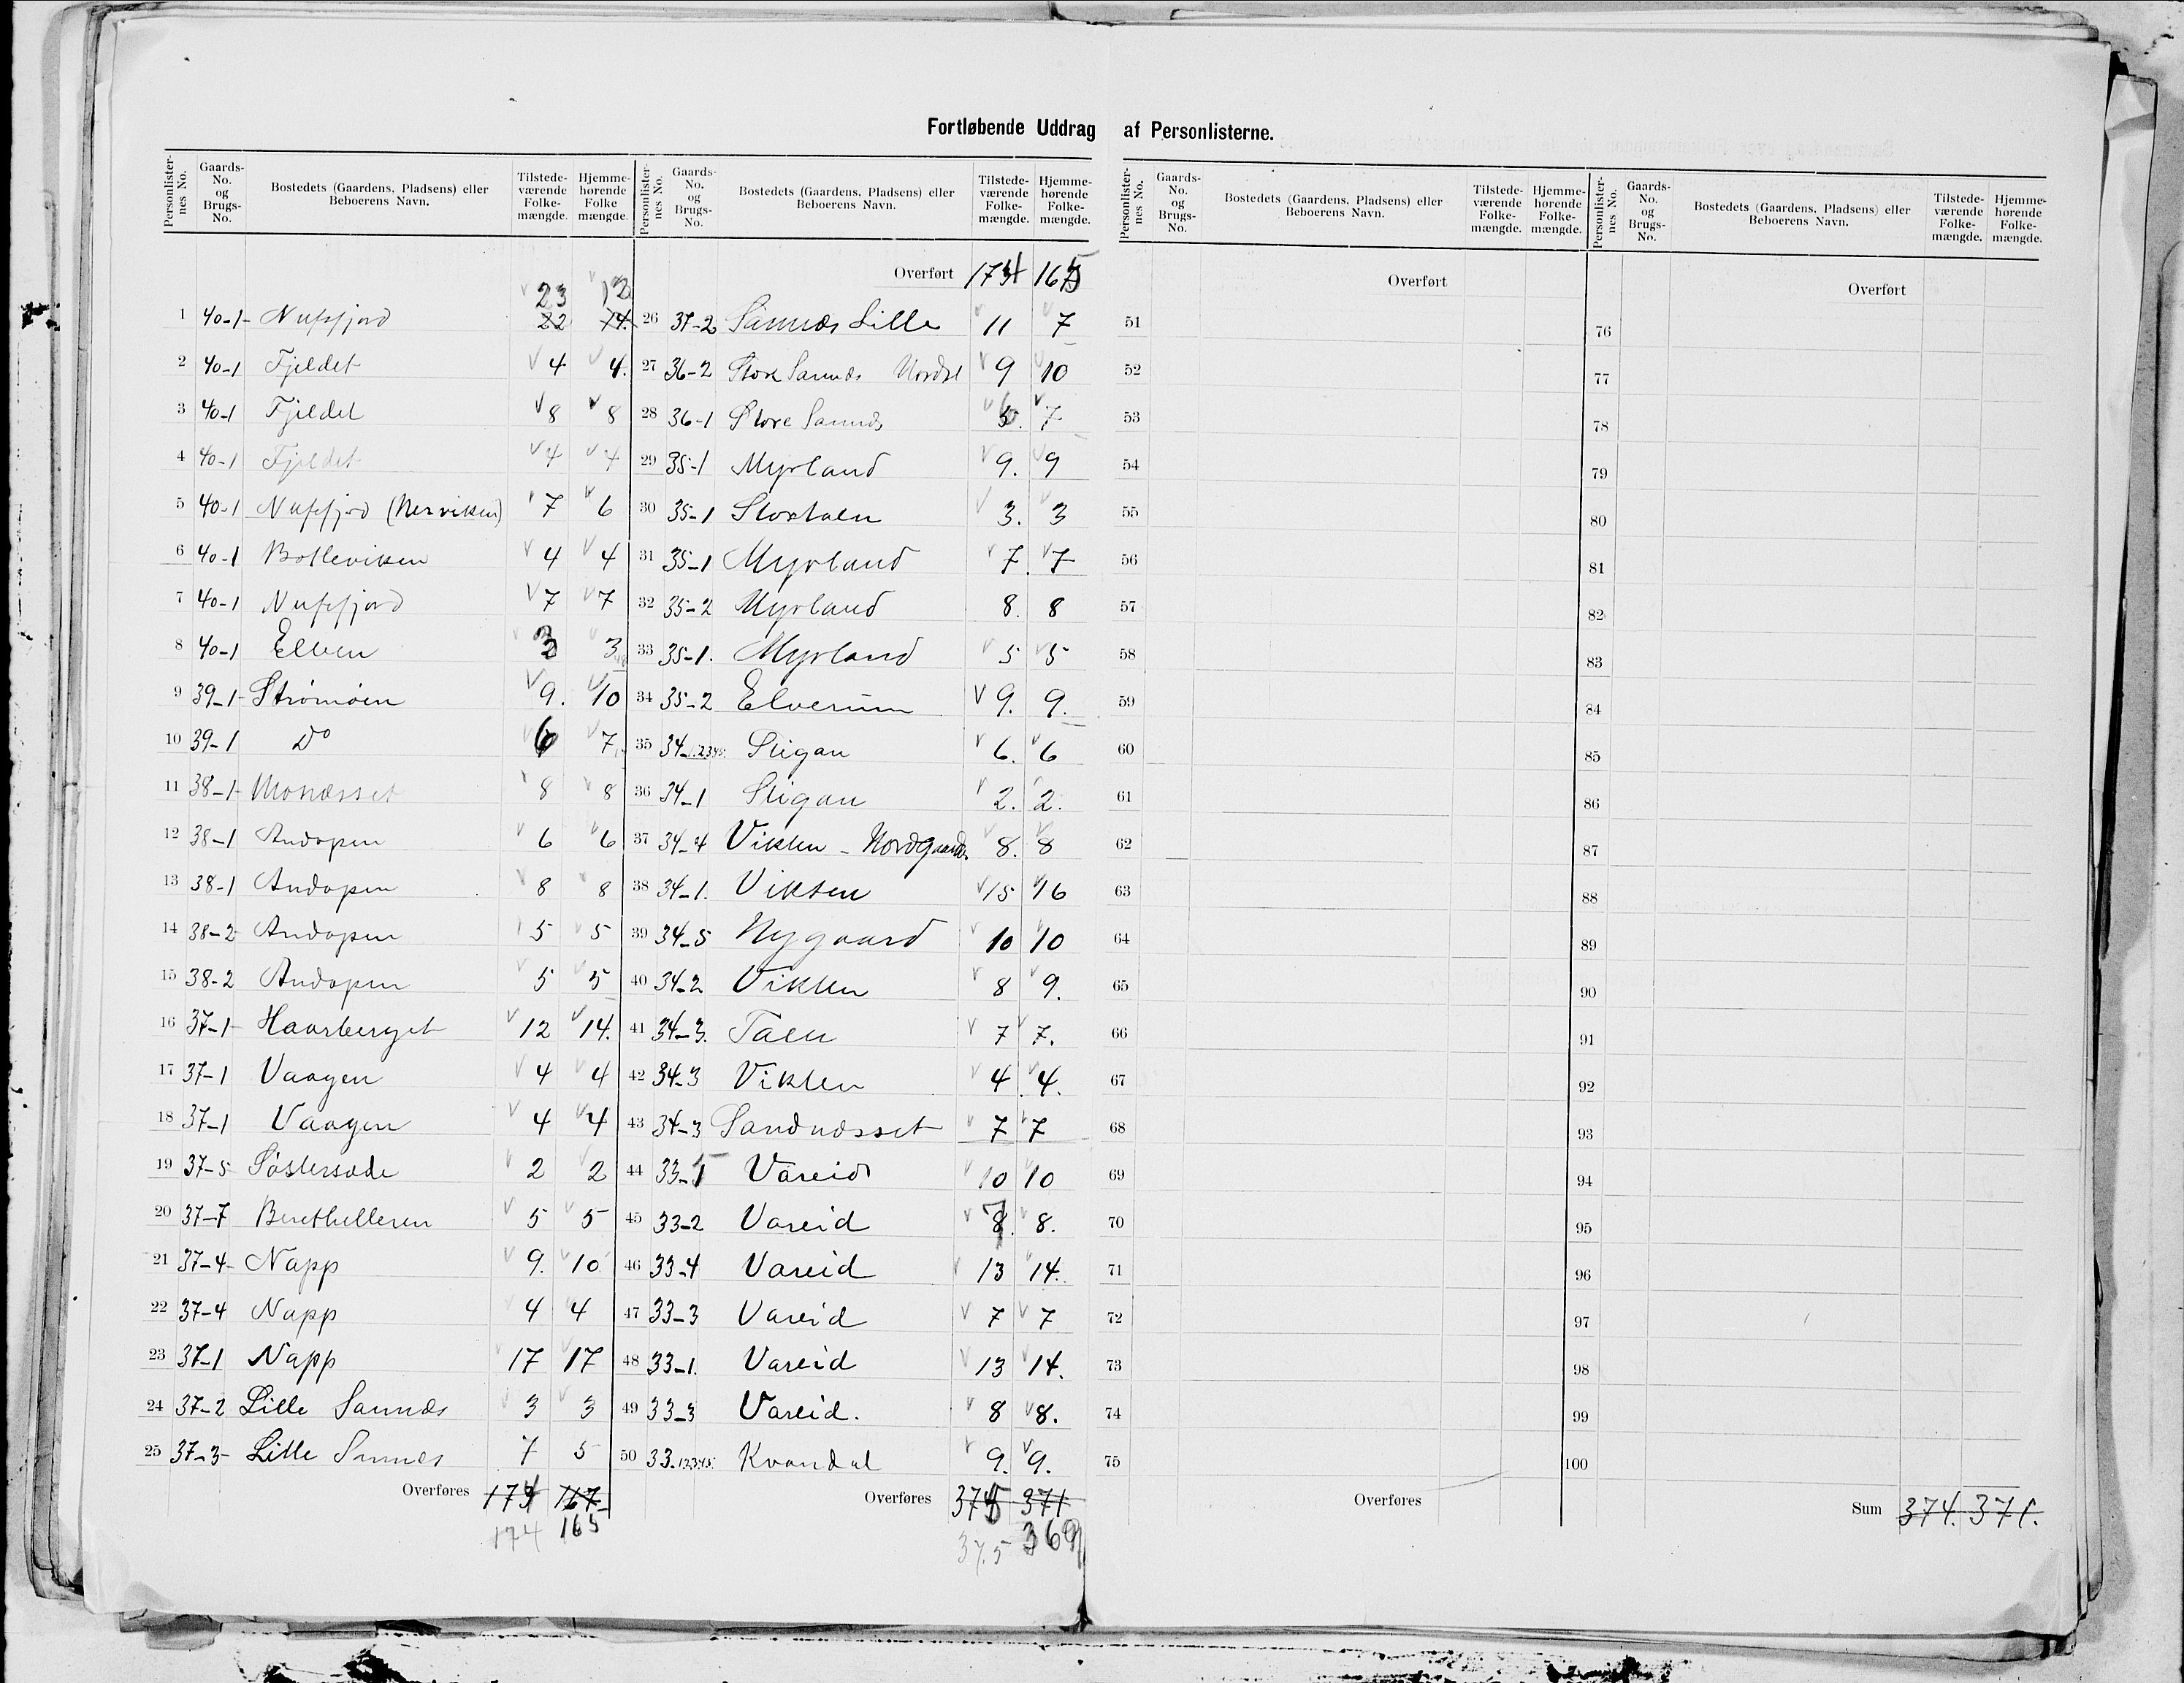 Fortløbende Uddrag af Personlisternе.
Personlister-nes No. Gaards-No. og Brugs-No. Bostedets (Gaardens, Pladsens) eller Beboerens Navn. Tilstede-værende Folke-mængde. Hjemme-hørende Folke mængde. Personlister-nes No. Gaards-No. og Brugs-No. Bostedets (Gaardens, Pladsens) eller Beboerens Navn. Tilstede-værende Folke-mængde. Hjemme-hørende Folke-mængde.
Overført 174 165
23
1 40-1 Nufsfjord 22 14. 
2 40-1 Fjeldet 4 4.
3 40-1 Fjeldet 8 8
4 40-1 Fjeldet 4 4
5 40-1 Nufsfjord (Nerviken) 7 6
6 40-1 Bolleviken 4 4
7 40-1 Nufsfjord 7 7
8 40-1 Elven 3 3
9 39-1 Strømøen 9. 10
10 39-1 Do 6 7
11 38-1 Monæsset 8 8
12 38-1 Andopen 6 6
13 38-1 Andopen 8 8
14 38-2 Andopen 5 5
15 38-2 Andopen 5 5
16 37-1 Haarberget 12 14.
17 37-1 Vaagen 4 4
18 37-1 Vaagen 4 4
19 37-5 2 2
20 37-7 Berethelleren 5 5
21 37-4 Napp 9. 10
22 37-4 Napp 4 4
23 37-1 Napp 17 17
24 37-2 Lille Sannæs 3 3
25 37-3 Lille Sannæs 7 5
Overføres 174 167
174 165
26 37-2 Sannæs Lille 11 7
27 36-2 Store Sannæs Nordre 9 10
28 36-1 Store Sannæs 7
29 35-1 Myrland 9. 9
30 35-1 3. 3
31 35-1 Myrland 7. 7
32 35-2 Myrland 8. 8
33 35-1. Myrland 5 5
34 35-2 Elverum 9. 9.
35 34-1.2.3.4.5. Stigan 6. 6
36 34-1 Stigan 2. 2.
37 34-4 Vikten - Nordgaarden 8. 8
38 34-1. Vikten 15 16
39 34-5 Nygaard 10 10
40 34-2 Vikten 8 9.
41 34-3. Taen 7 7.
42 34-3 Vikten 4 4.
43 34-3 Sandnæsset 7 7
44 33-5 Vareid 10 10
45 33-2 Vareid 7 8.
46 33-4 Vareid 13 14.
47 33-3 Vareid 7 7
48 33-1. Vareid 13 14.
49 33-3 Vareid. 8 8.
50 33.1.2.3.4.5. Kvandal 9. 9.
Overføres 375 371
375 369
Personlister-nes No. Gaards-No. og Brugs-No. Bostedets (Gaardens, Pladsens) eller Beboerens Navn. Tilstede-værende Folke-mængde. Hjemme-hørende Folke-mængde. Personlister-nes No. Gaards-No. og Brugs-No. Bostedets (Gaardens, Pladsens) eller Beboerens Navn. Tilstede-værende Folke-mængde. Hjemme-hørende Folke-mængde.
Overført
51
52
53
54
55
56
57
58
59
60
61
62
63
64
65
66
67
68
69
70
71
72
73
74
75
Overføres
Overført
76
77
78
79
80
81
82
83
84
85
86
87
88
89
90
91
92
93
94
95
96
97
98
99
100
Sum 374. 371.